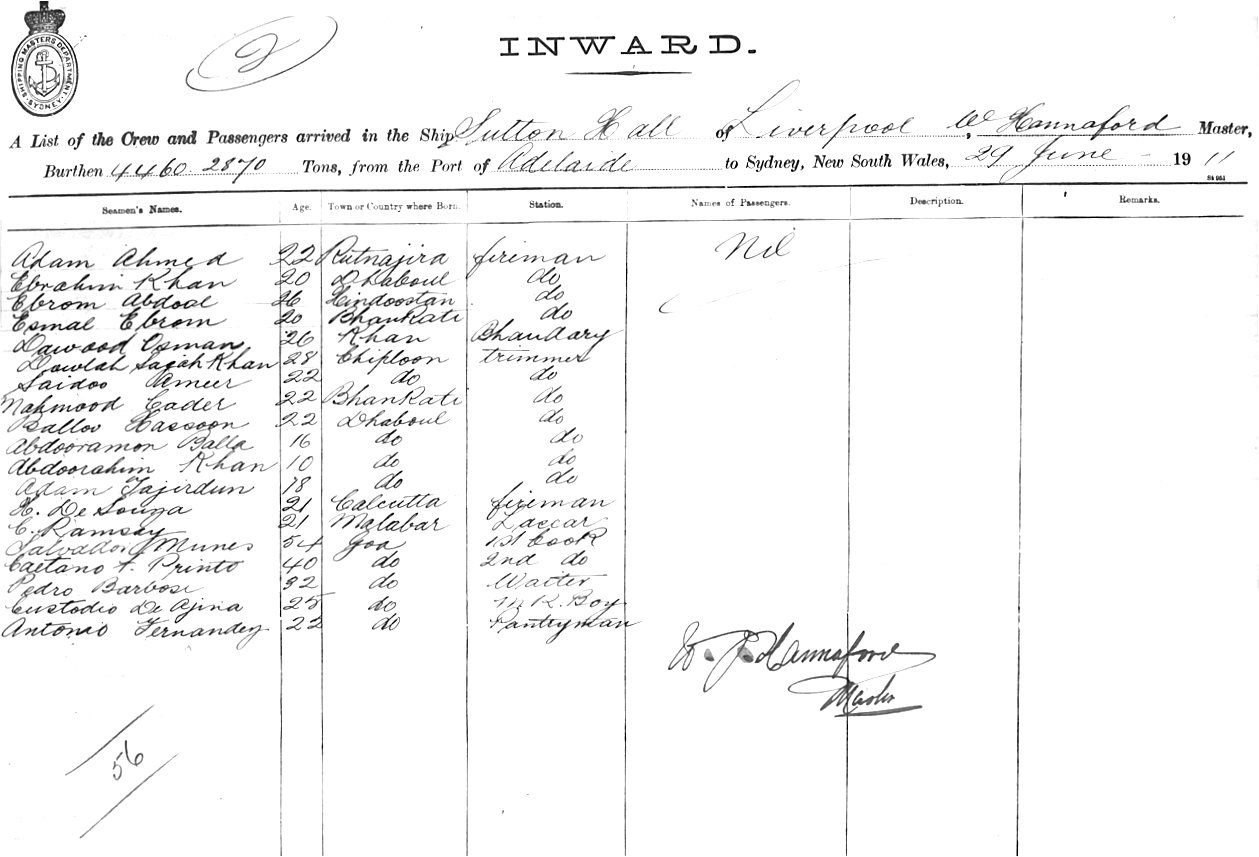 SHIPPING MASTERS DEPARTMENT
SYDNEY
2
INWARD.
A List of the Crew and Passengers arrived in the Ship Sutton Hall of Liverpool, W Hannaford Master,
Burthen 4460. 2870 Tons, from the Port of Adelaide to Sydney, New South Wales, 29 June - 1911
Seamen's Names. Age. Town or Country where Born. Station. Names of Passengers. Description. Remarks.
Adam Ahmed 22 Rutnajira fireman Nil
Ebrahim Khan 20 Dhaboul do
Ebrom Abdool 26 Hindoostan do
Esmal Ebrom 20 Bhankati do
Dawood Osman 26 Khan Bhandary
Dowlah Sajah Khan 28 Chiploon trimmer
Saidoo Ameer 22 do do
Mahmood Cader 22 Bhankati do
Balloo Hassoon 22 Dhaboul do
Abdooramon Balla 16 do do
Abdoorahim Khan 10 do do
Adam Tajirdun 18 do do
H. De Souza 21 Calcutta fireman
C. Ramsay 21 Malabar Lascar
Salvador Munes 54 Goa 1st Cook
Caetano F. Printo 40 do 2nd do
Pedro Barbose 32 do Waiter
Custodio De Ajina 25 do M R. Boy
Antonio Fernandez 22 do Pantryman
W. J. Hannaford
Master
56